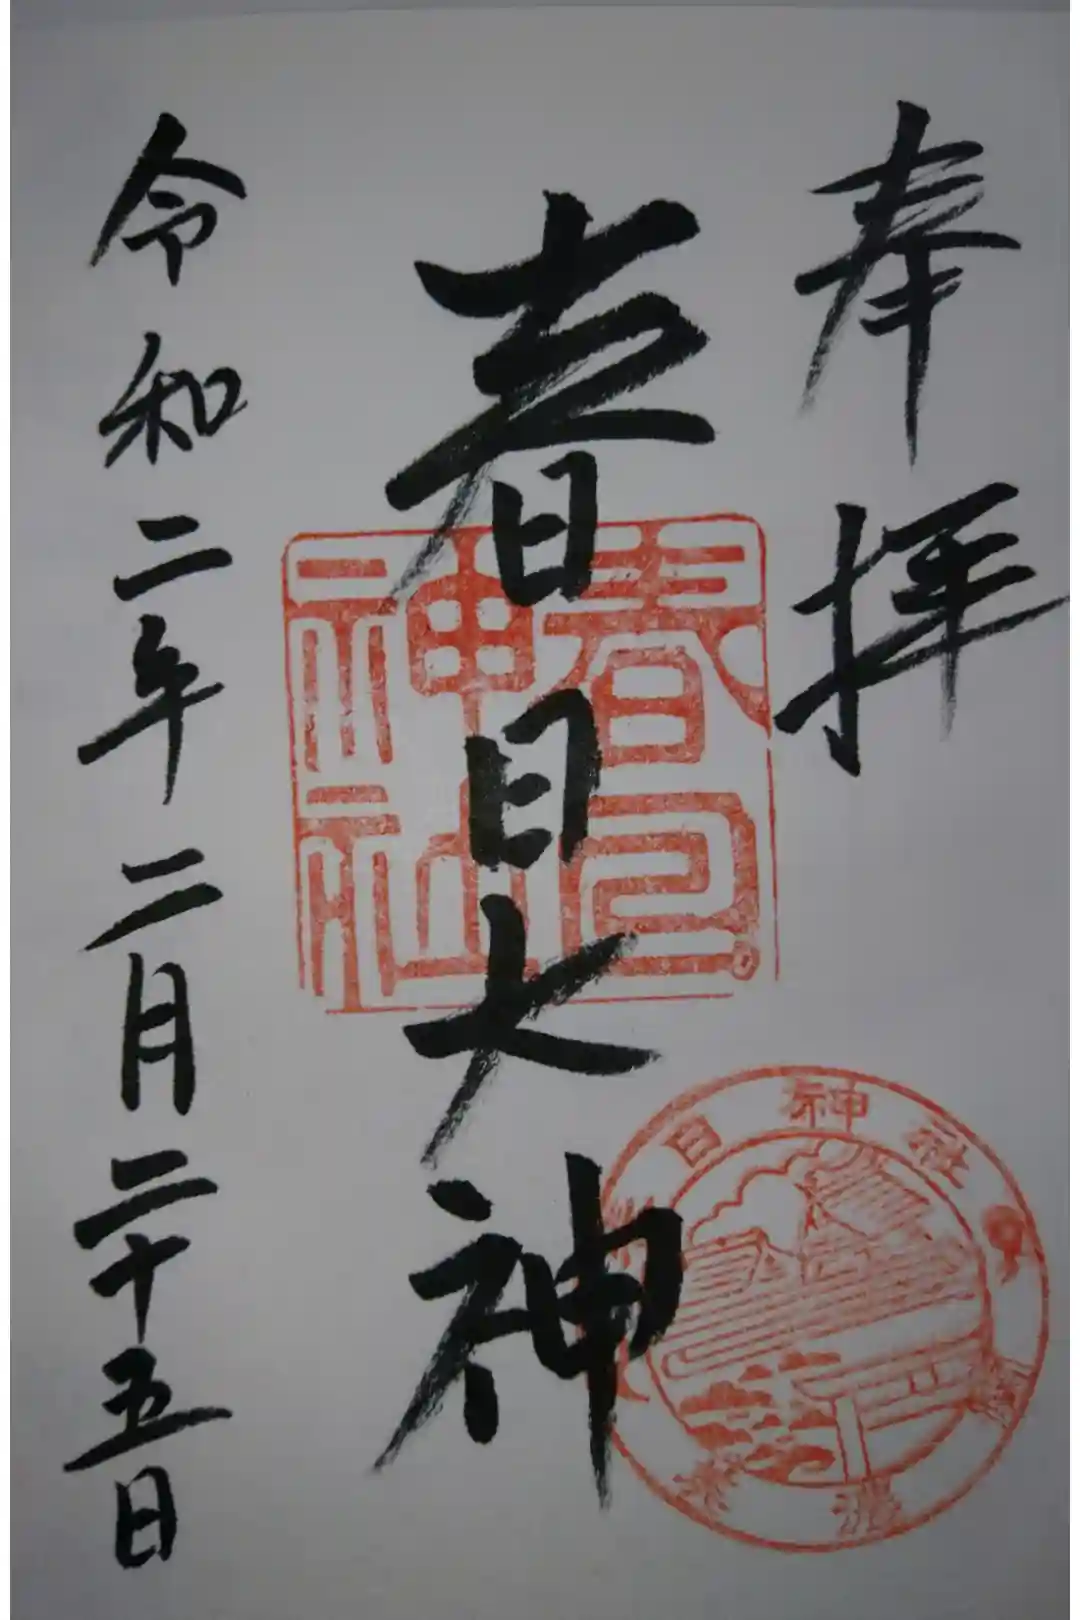 奉拝
春日大神
令和二年二月二十五日
春日
神社
日神社